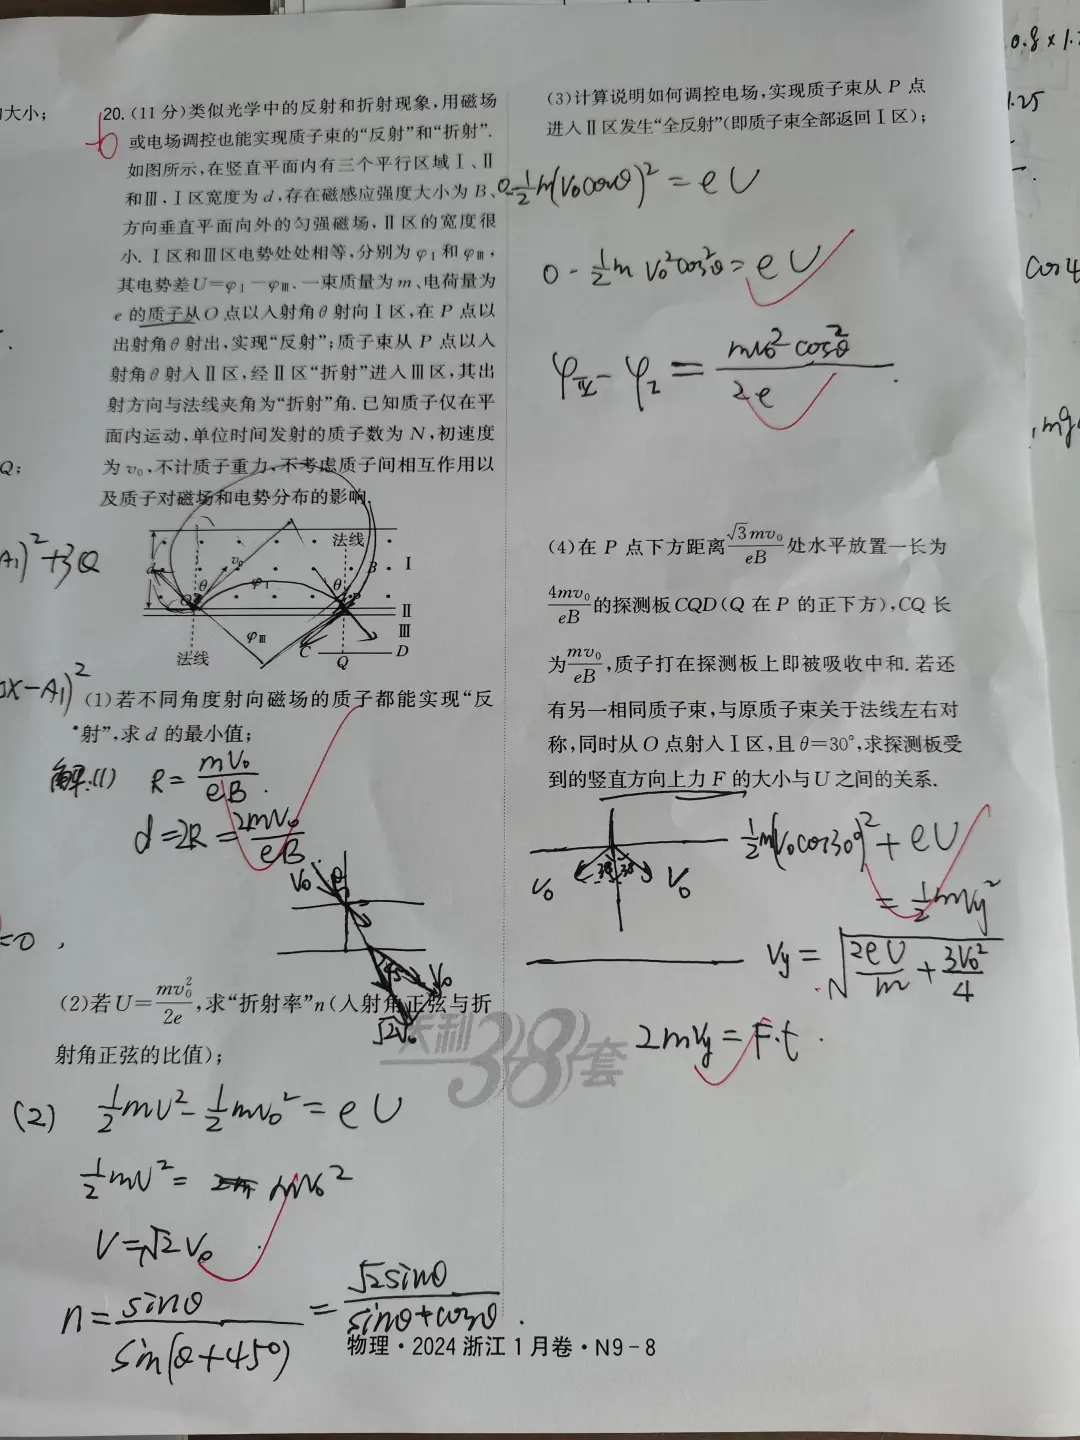 大小;
20.(11分)类似光学中的反射和折射现象,用磁场
或电场调控也能实现质子束的“反射”和“折射”.
如图所示,在竖直平面内有三个平行区域Ⅰ、Ⅱ
和Ⅲ,Ⅰ区宽度为d,存在磁感应强度大小为B、
方向垂直平面向外的匀强磁场,Ⅱ区的宽度很
小.Ⅰ区和Ⅲ区电势处处相等,分别为φⅠ和φⅢ,
其电势差U=φⅠ-φⅢ.一束质量为m、电荷量为
e的质子从O点以入射角θ射向Ⅰ区,在P点以
出射角θ射出,实现“反射”;质子束从P点以入
射角θ射入Ⅱ区,经Ⅱ区“折射”进入Ⅲ区,其出
射方向与法线夹角为“折射”角.已知质子仅在平
面内运动,单位时间发射的质子数为N,初速度
为v₀,不计质子重力,不考虑质子间相互作用以
及质子对磁场和电势分布的影响.
法线
B Ⅰ
θ v₀ φⅠ θ
O P
Ⅱ
φⅢ Ⅲ
C D
法线 Q
(1)若不同角度射向磁场的质子都能实现“反
射”,求d的最小值;
解:(1) R=mV₀/eB.
d=2R=2mV₀/eB.
V₀ θ
45° V₀
√2V₀
(2)若U=mv₀²/2e,求“折射率”n(入射角正弦与折
射角正弦的比值);
天利38套
(2) ½mV²-½mv₀²=eU
½mV²= mV₀²
V=√2V₀
n=sinθ/sin(θ+45°)=√2sinθ/sinθ+cosθ.
(3)计算说明如何调控电场,实现质子束从P点
进入Ⅱ区发生“全反射”(即质子束全部返回Ⅰ区);
0-½m(V₀cosθ)²=eU
0-½mV₀²cos²θ=eU
φⅢ-φⅠ=mv₀²cos²θ/2e.
(4)在P点下方距离√3mv₀/eB处水平放置一长为
4mv₀/eB的探测板CQD(Q在P的正下方),CQ长
为mv₀/eB,质子打在探测板上即被吸收中和.若还
有另一相同质子束,与原质子束关于法线左右对
称,同时从O点射入Ⅰ区,且θ=30°,求探测板受
到的竖直方向上力F的大小与U之间的关系.
V₀ 30° 30° V₀
½m(V₀cos30°)²+eU
=½mVy²
Vy=√(2eU/m+3V₀²/4)
2mVy=F·t.
物理·2024浙江1月卷·N9-8
Q;
A₁)²+3Q
0x-A₁)²
=0,
0.8×1.
1.25
cos4
mg